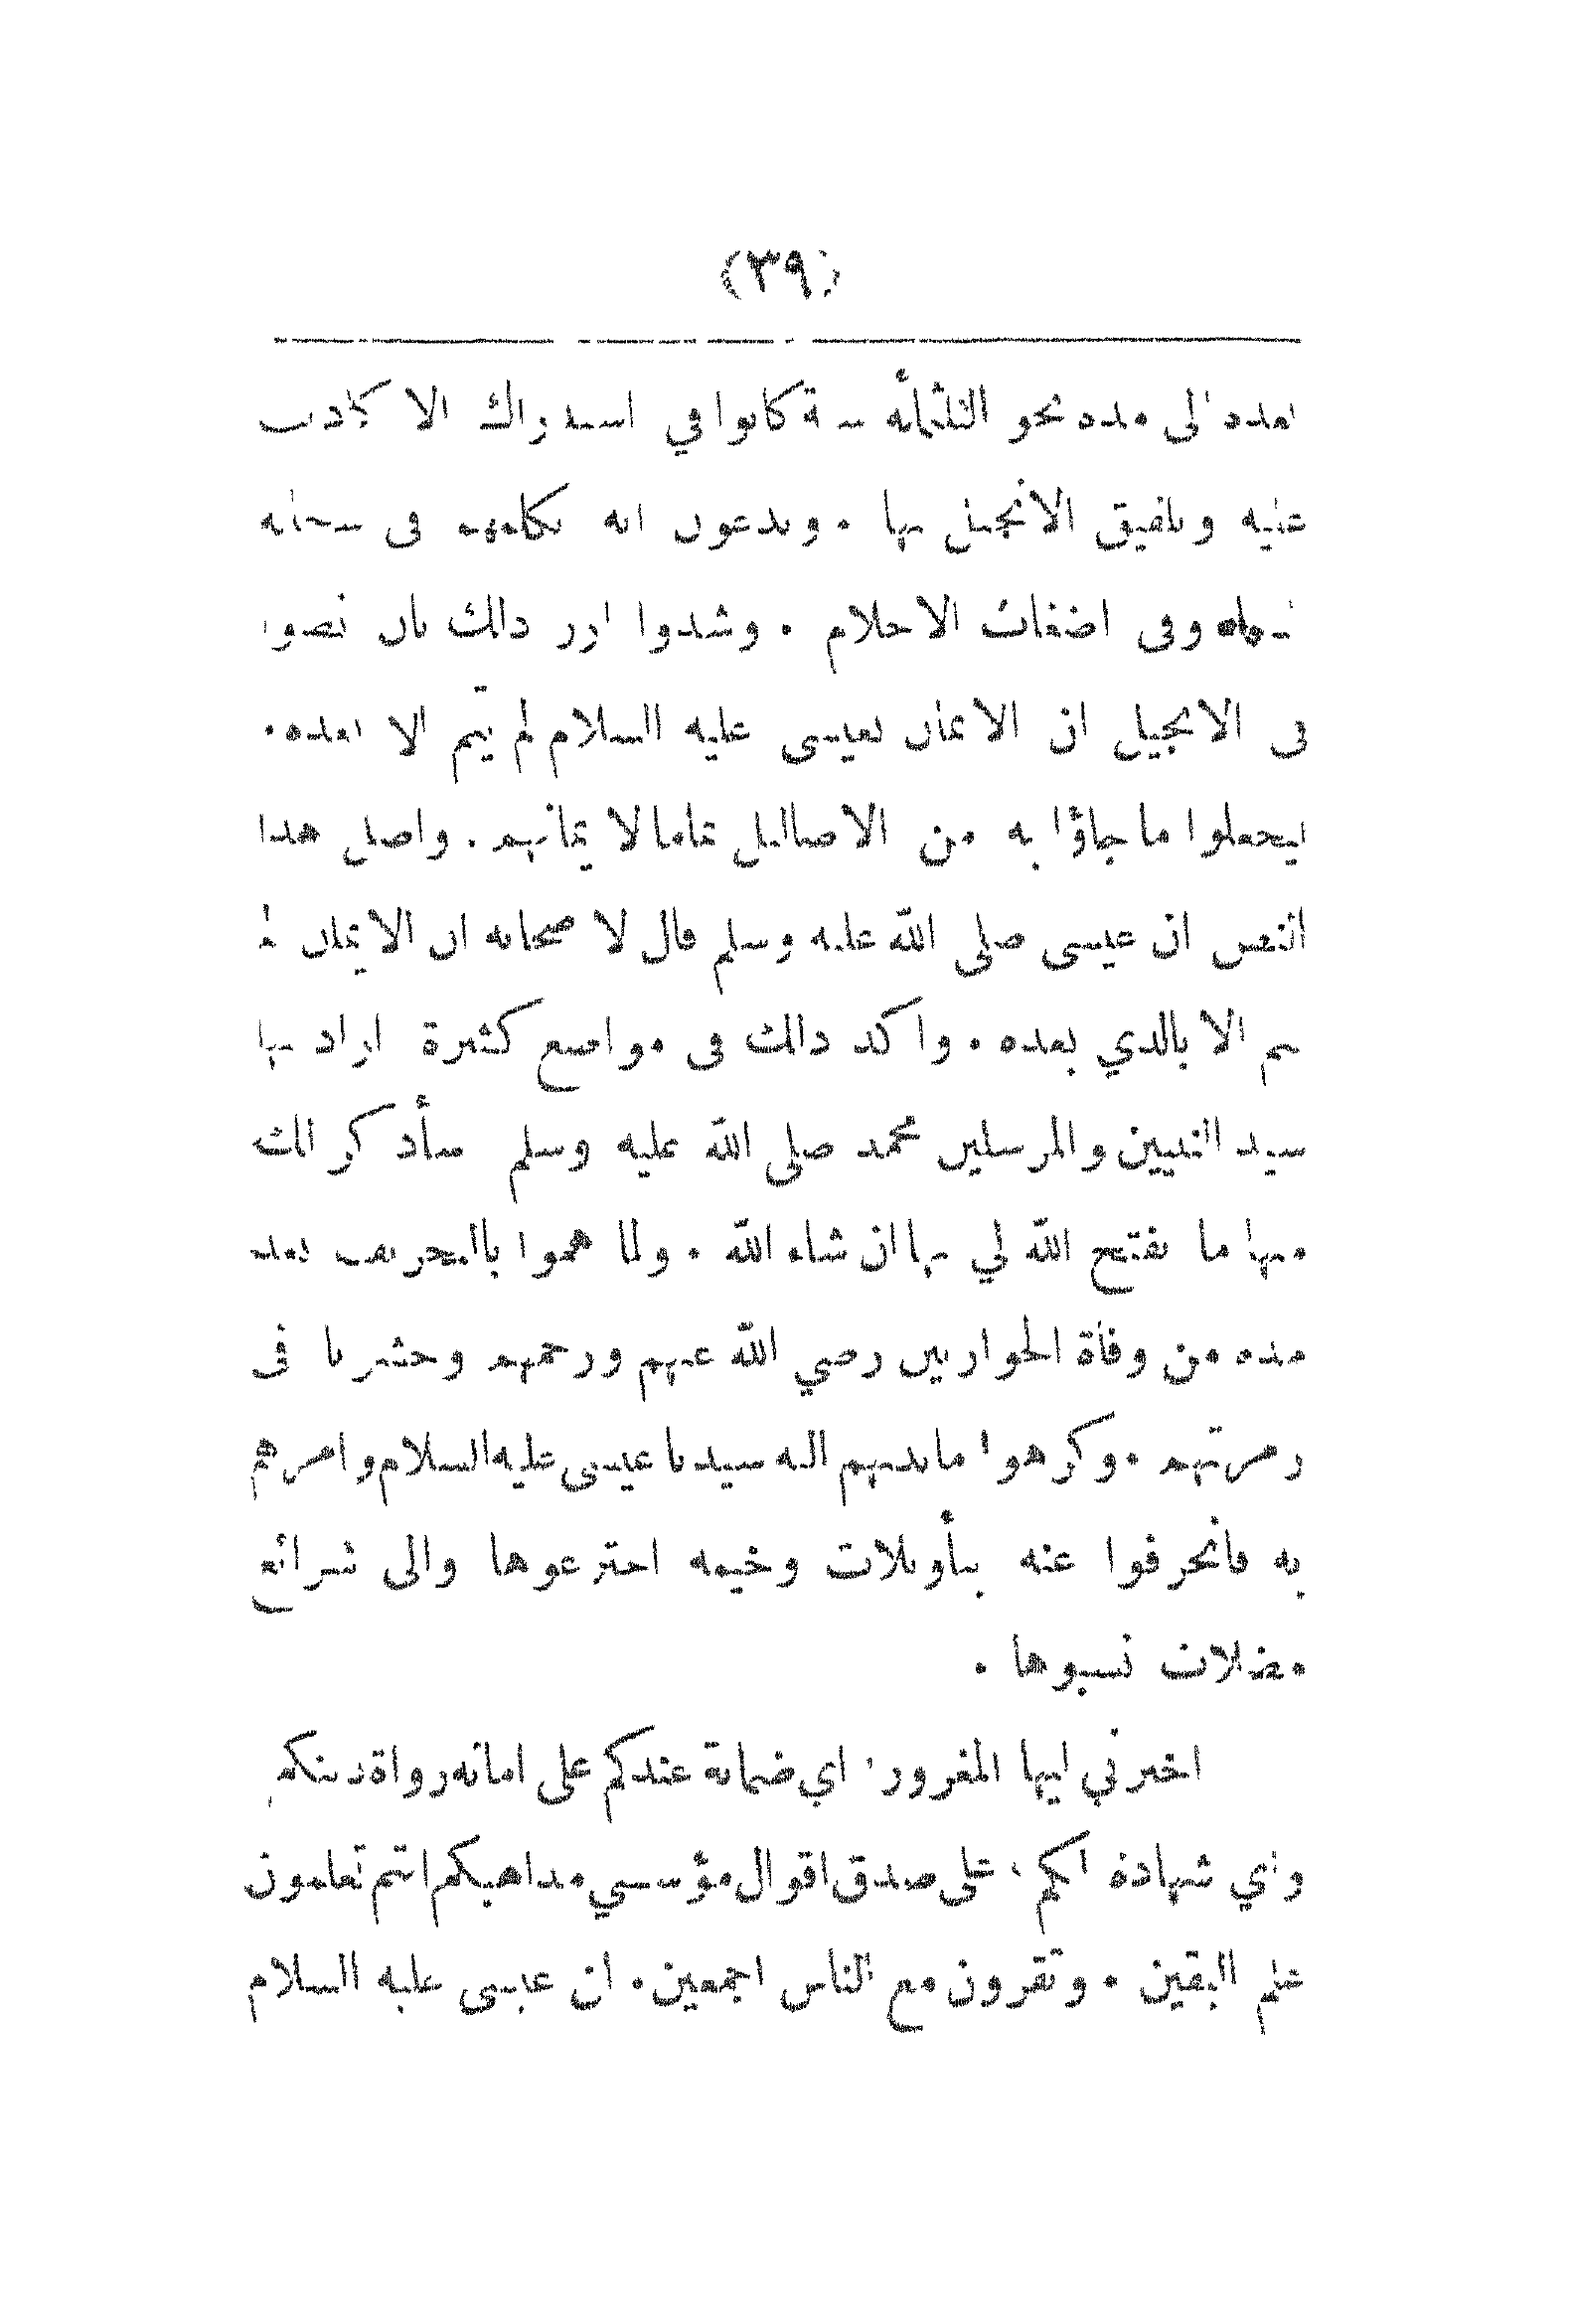 (٣٩)
بعده الى مدة نحو الثلثمأة سنة كانوا في استدراك الاكاذيب
عليه وتلفيق الانجيل بها . ويدعون انه يكلمهم في
وفي اضغاث الاحلام . وشدوا ازر ذلك بان نصوا
في الانجيل ان الايمان بعيسى عليه السلام لم يتم الا بعده .
ليجعلوا ما جاؤا به من الاضاليل تماما لايمانهم . واصل هذا
النص ان عيسى صلى الله عليه وسلم قال لاصحابه ان الايمان لم
يتم الا بالذي بعده . واكد ذلك في مواضع كثيرة اراد بها
سيد النبيين والمرسلين محمد صلى الله عليه وسلم سأذكر لك
منها ما يفتح الله لي بها ان شاء الله . ولما هموا بالتحريف بعد
مدة من وفاة الحواريين رضي الله عنهم ورحمهم وحشرنا في
زمرتهم . وكرهوا ما ندبهم اليه سيدنا عيسى عليه السلام وامرهم
به فانحرفوا عنه بتأويلات وخيمة اخترعوها والى شرائع
مضلات نسبوها .
اخبرني ايها المغرور اي ضمانة عندكم على امانة رواة دينكم
واي شهادة لكم على صدق اقوال مؤسسي مذاهبكم انتم تعلمون
علم اليقين . وتقرون مع الناس اجمعين . ان عيسى عليه السلام